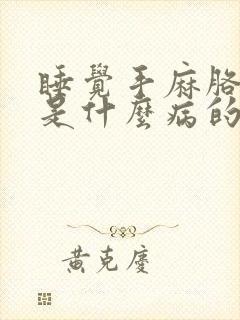 睡覺手麻胳
是什麼病的
黃克慶